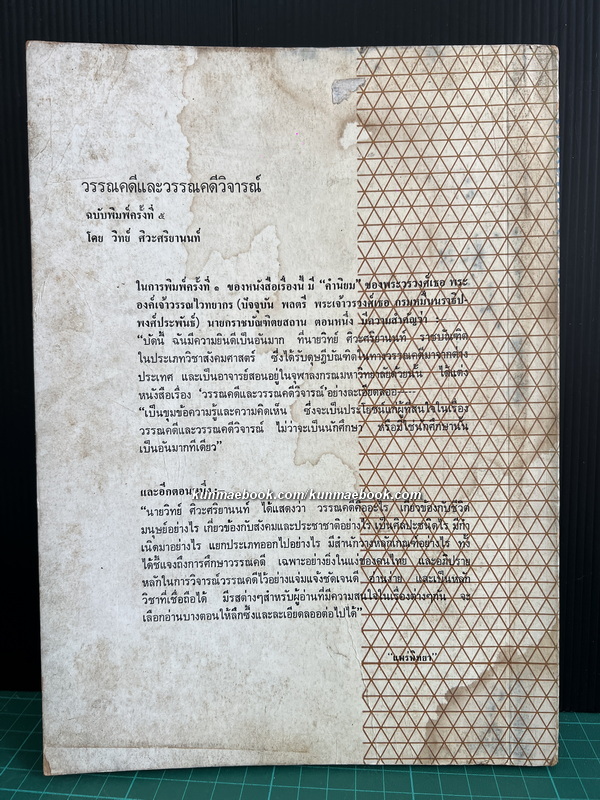 วรรณคดีและวรรณคดีวิจารณ์
ฉบับพิมพ์ครั้งที่ ๕
โดย วิทย์ ศิวะศริยานนท์
ในการพิมพ์ครั้งที่ ๑ ของหนังสือเรื่องนี้ มี “คำนิยม” ของพระวรวงศ์เธอ พระ
องค์เจ้าวรรณไวทยากร (ปัจจุบัน พลตรี พระเจ้าวรวงศ์เธอ กรมหมื่นนราธิป-
พงศ์ประพันธ์) นายกราชบัณฑิตยสถาน ตอนหนึ่ง มีความสำคัญว่า :-
“บัดนี้ ฉันมีความยินดีเป็นอันมาก ที่นายวิทย์ ศิวะศริยานนท์ ราชบัณฑิต
ในประเภทวิชาสังคมศาสตร์ ซึ่งได้รับดุษฎีบัณฑิตในทางวรรณคดีมาจากต่าง
ประเทศ และเป็นอาจารย์สอนอยู่ในจุฬาลงกรณมหาวิทยาลัยด้วยนั้น ได้แต่ง
หนังสือเรื่อง ‘วรรณคดีและวรรณคดีวิจารณ์’ อย่างละเอียดลออ.....
“เป็นขุมข้อความรู้และความคิดเห็น ซึ่งจะเป็นประโยชน์แก่ผู้ที่สนใจในเรื่อง
วรรณคดีและวรรณคดีวิจารณ์ ไม่ว่าจะเป็นนักศึกษา หรือมิใช่นักศึกษานั้น
เป็นอันมากทีเดียว”
และอีกตอนหนึ่ง :-
klinmaebook.com/kunmaebook.com
“นายวิทย์ ศิวะศริยานนท์ ได้แสดงว่า วรรณคดีคืออะไร เกี่ยวข้องกับชีวิต
มนุษย์อย่างไร เกี่ยวข้องกับสังคมและประชาชาติอย่างไร เป็นศิลปะชนิดไร มีกำ
เนิดมาอย่างไร แยกประเภทออกไปอย่างไร มีสำนักวางหลักเกณฑ์อย่างไร ทั้ง
ได้ชี้แจงถึงการศึกษาวรรณคดี เฉพาะอย่างยิ่งในแง่ของคนไทย และอภิปราย
หลักในการวิจารณ์วรรณคดีไว้อย่างแจ่มแจ้งชัดเจนดี อ่านง่าย และเป็นหลัก
วิชาที่เชื่อถือได้ มีรสต่างๆสำหรับผู้อ่านที่มีความสนใจในเรื่องต่างๆกัน จะ
เลือกอ่านบางตอนให้ลึกซึ้งและละเอียดลออต่อไปได้”
“แพร่พิทยา”